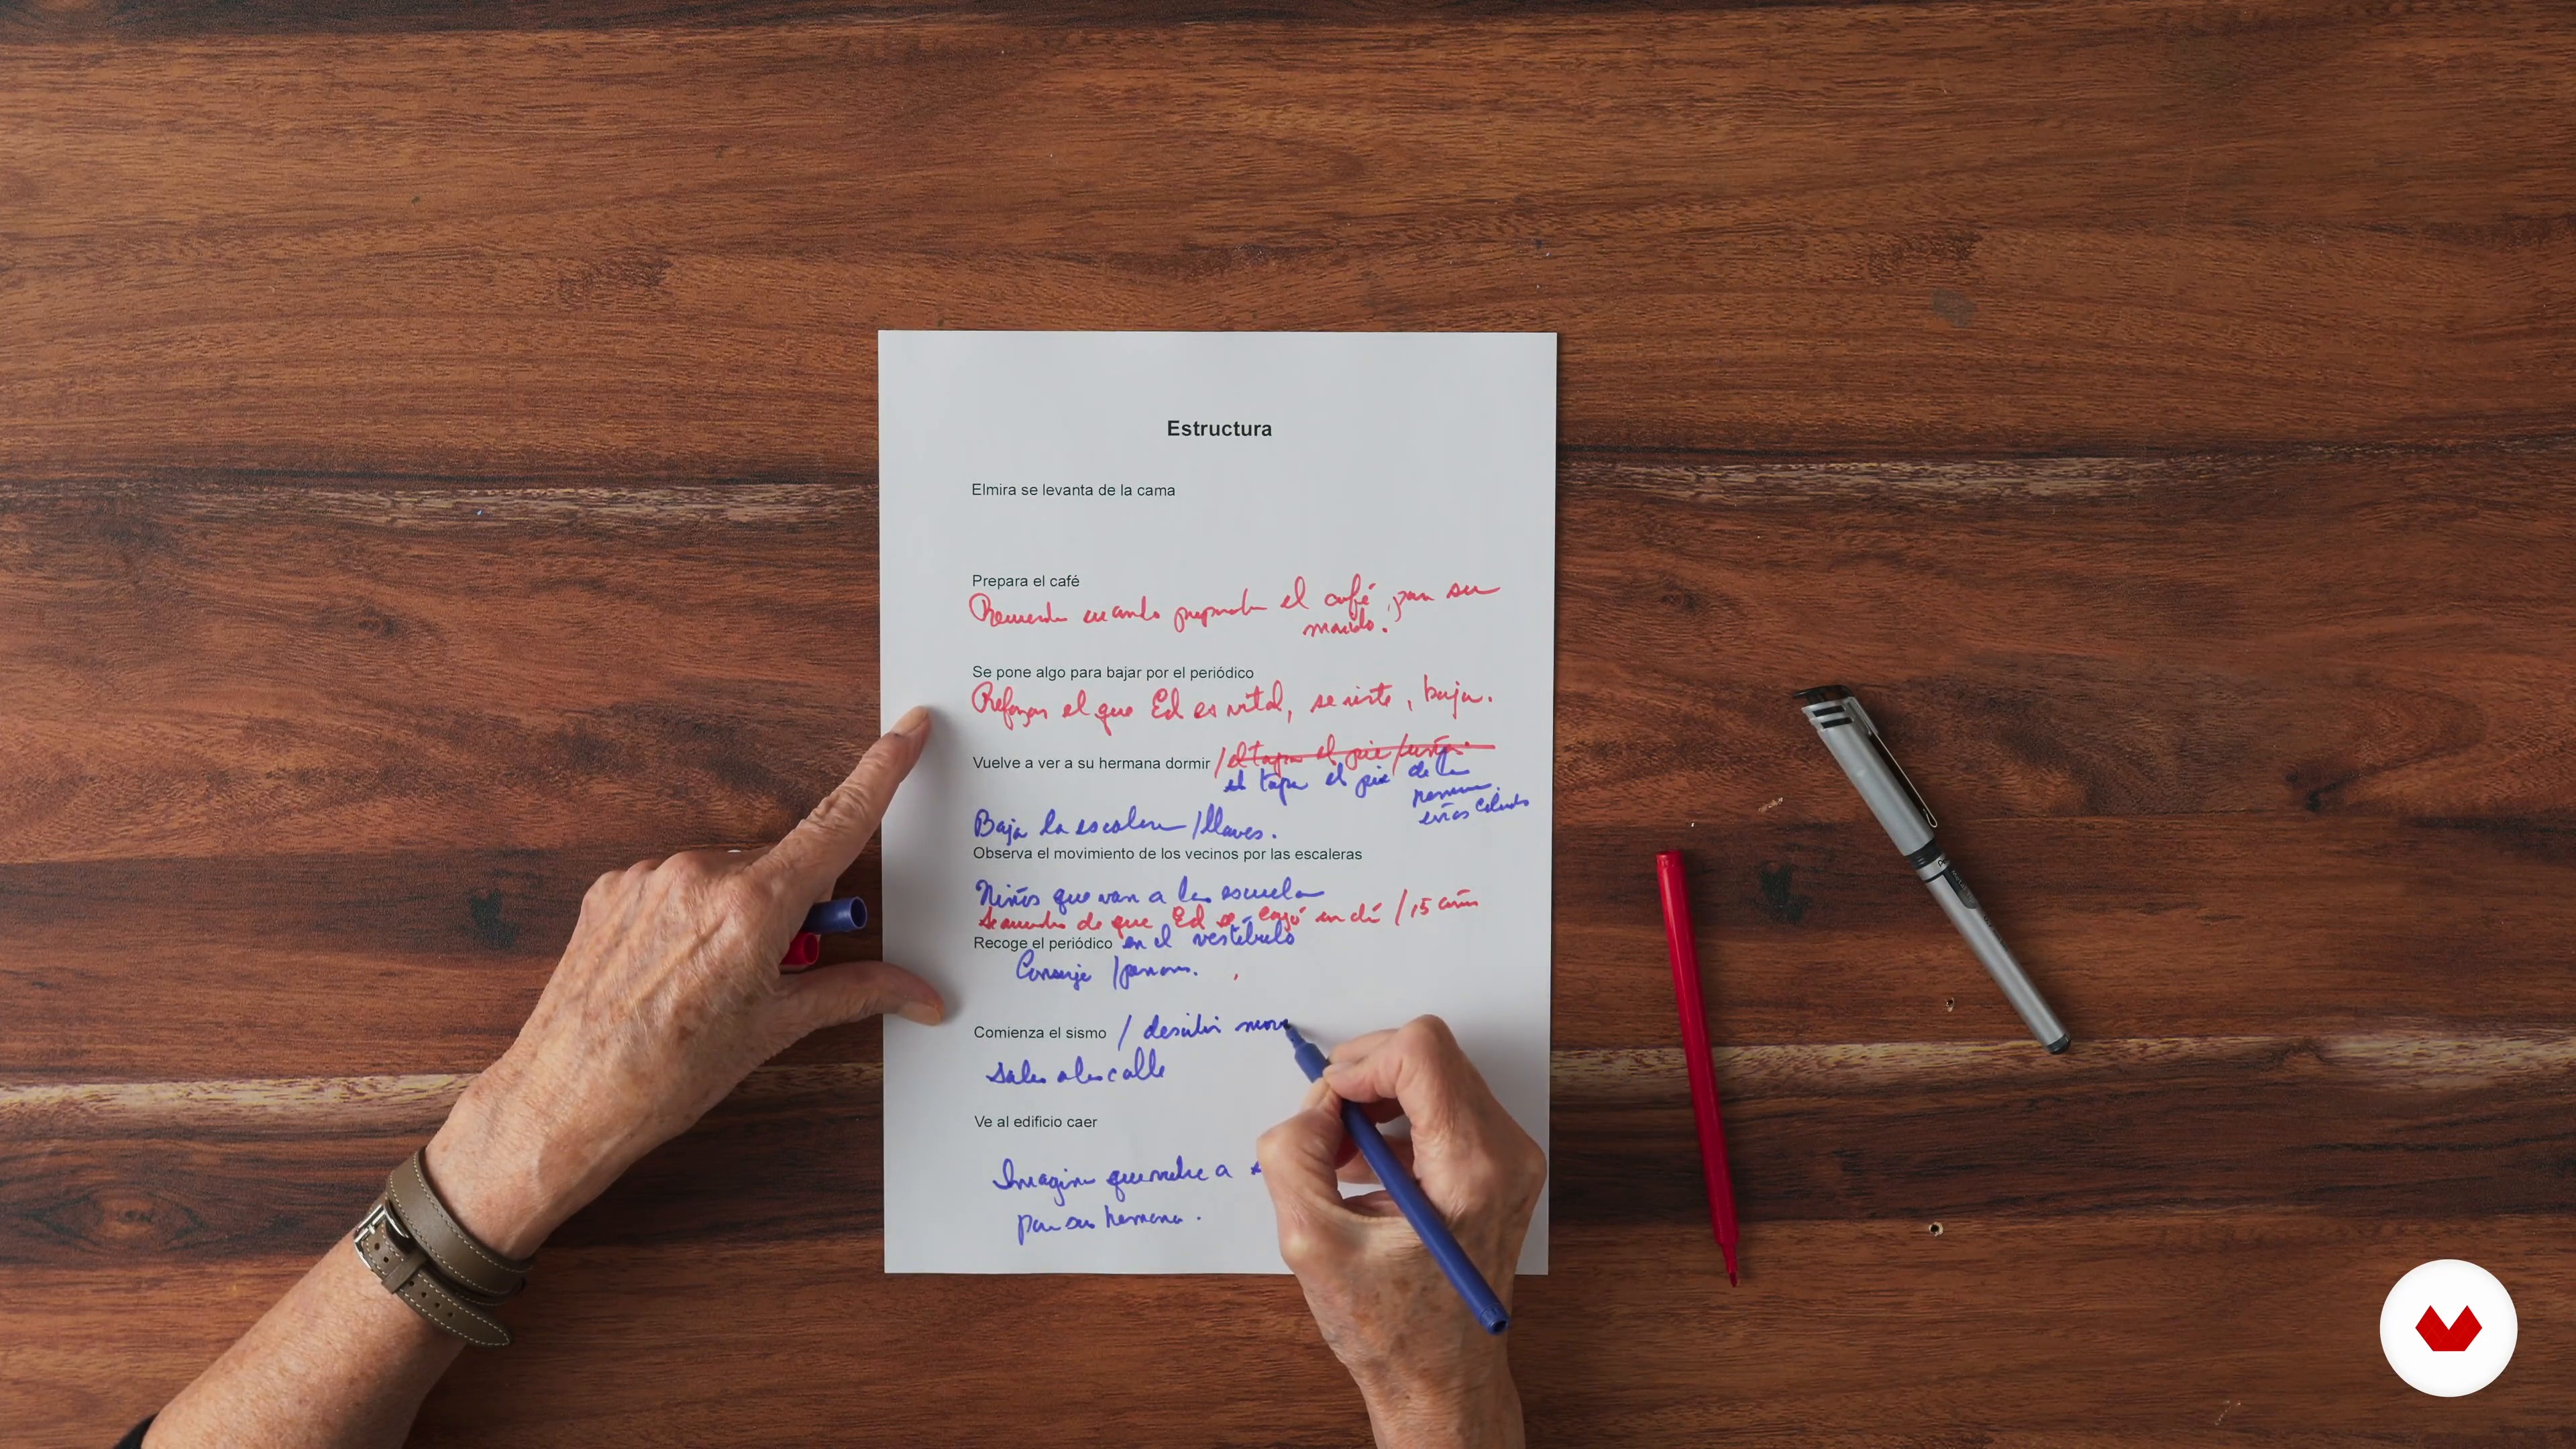 Estructura
Elmira se levanta de la cama
Prepara el café
Recuerda cuando preparaba el café para su
marido.
Se pone algo para bajar por el periódico
Reforzar el que Ed es vital, se viste, baja.
Vuelve a ver a su hermana dormir / el tapa el pie
el tapa el pie de la
hermana
Baja la escalera / llaves.
Observa el movimiento de los vecinos por las escaleras
Niños que van a la escuela
Se acuerda de que Ed se cayó un día / 15 años
Recoge el periódico en el vestíbulo
Conserje
Comienza el sismo / describir mov
Sale a la calle
Ve al edificio caer
Imagina que vuelve a
por su hermana.